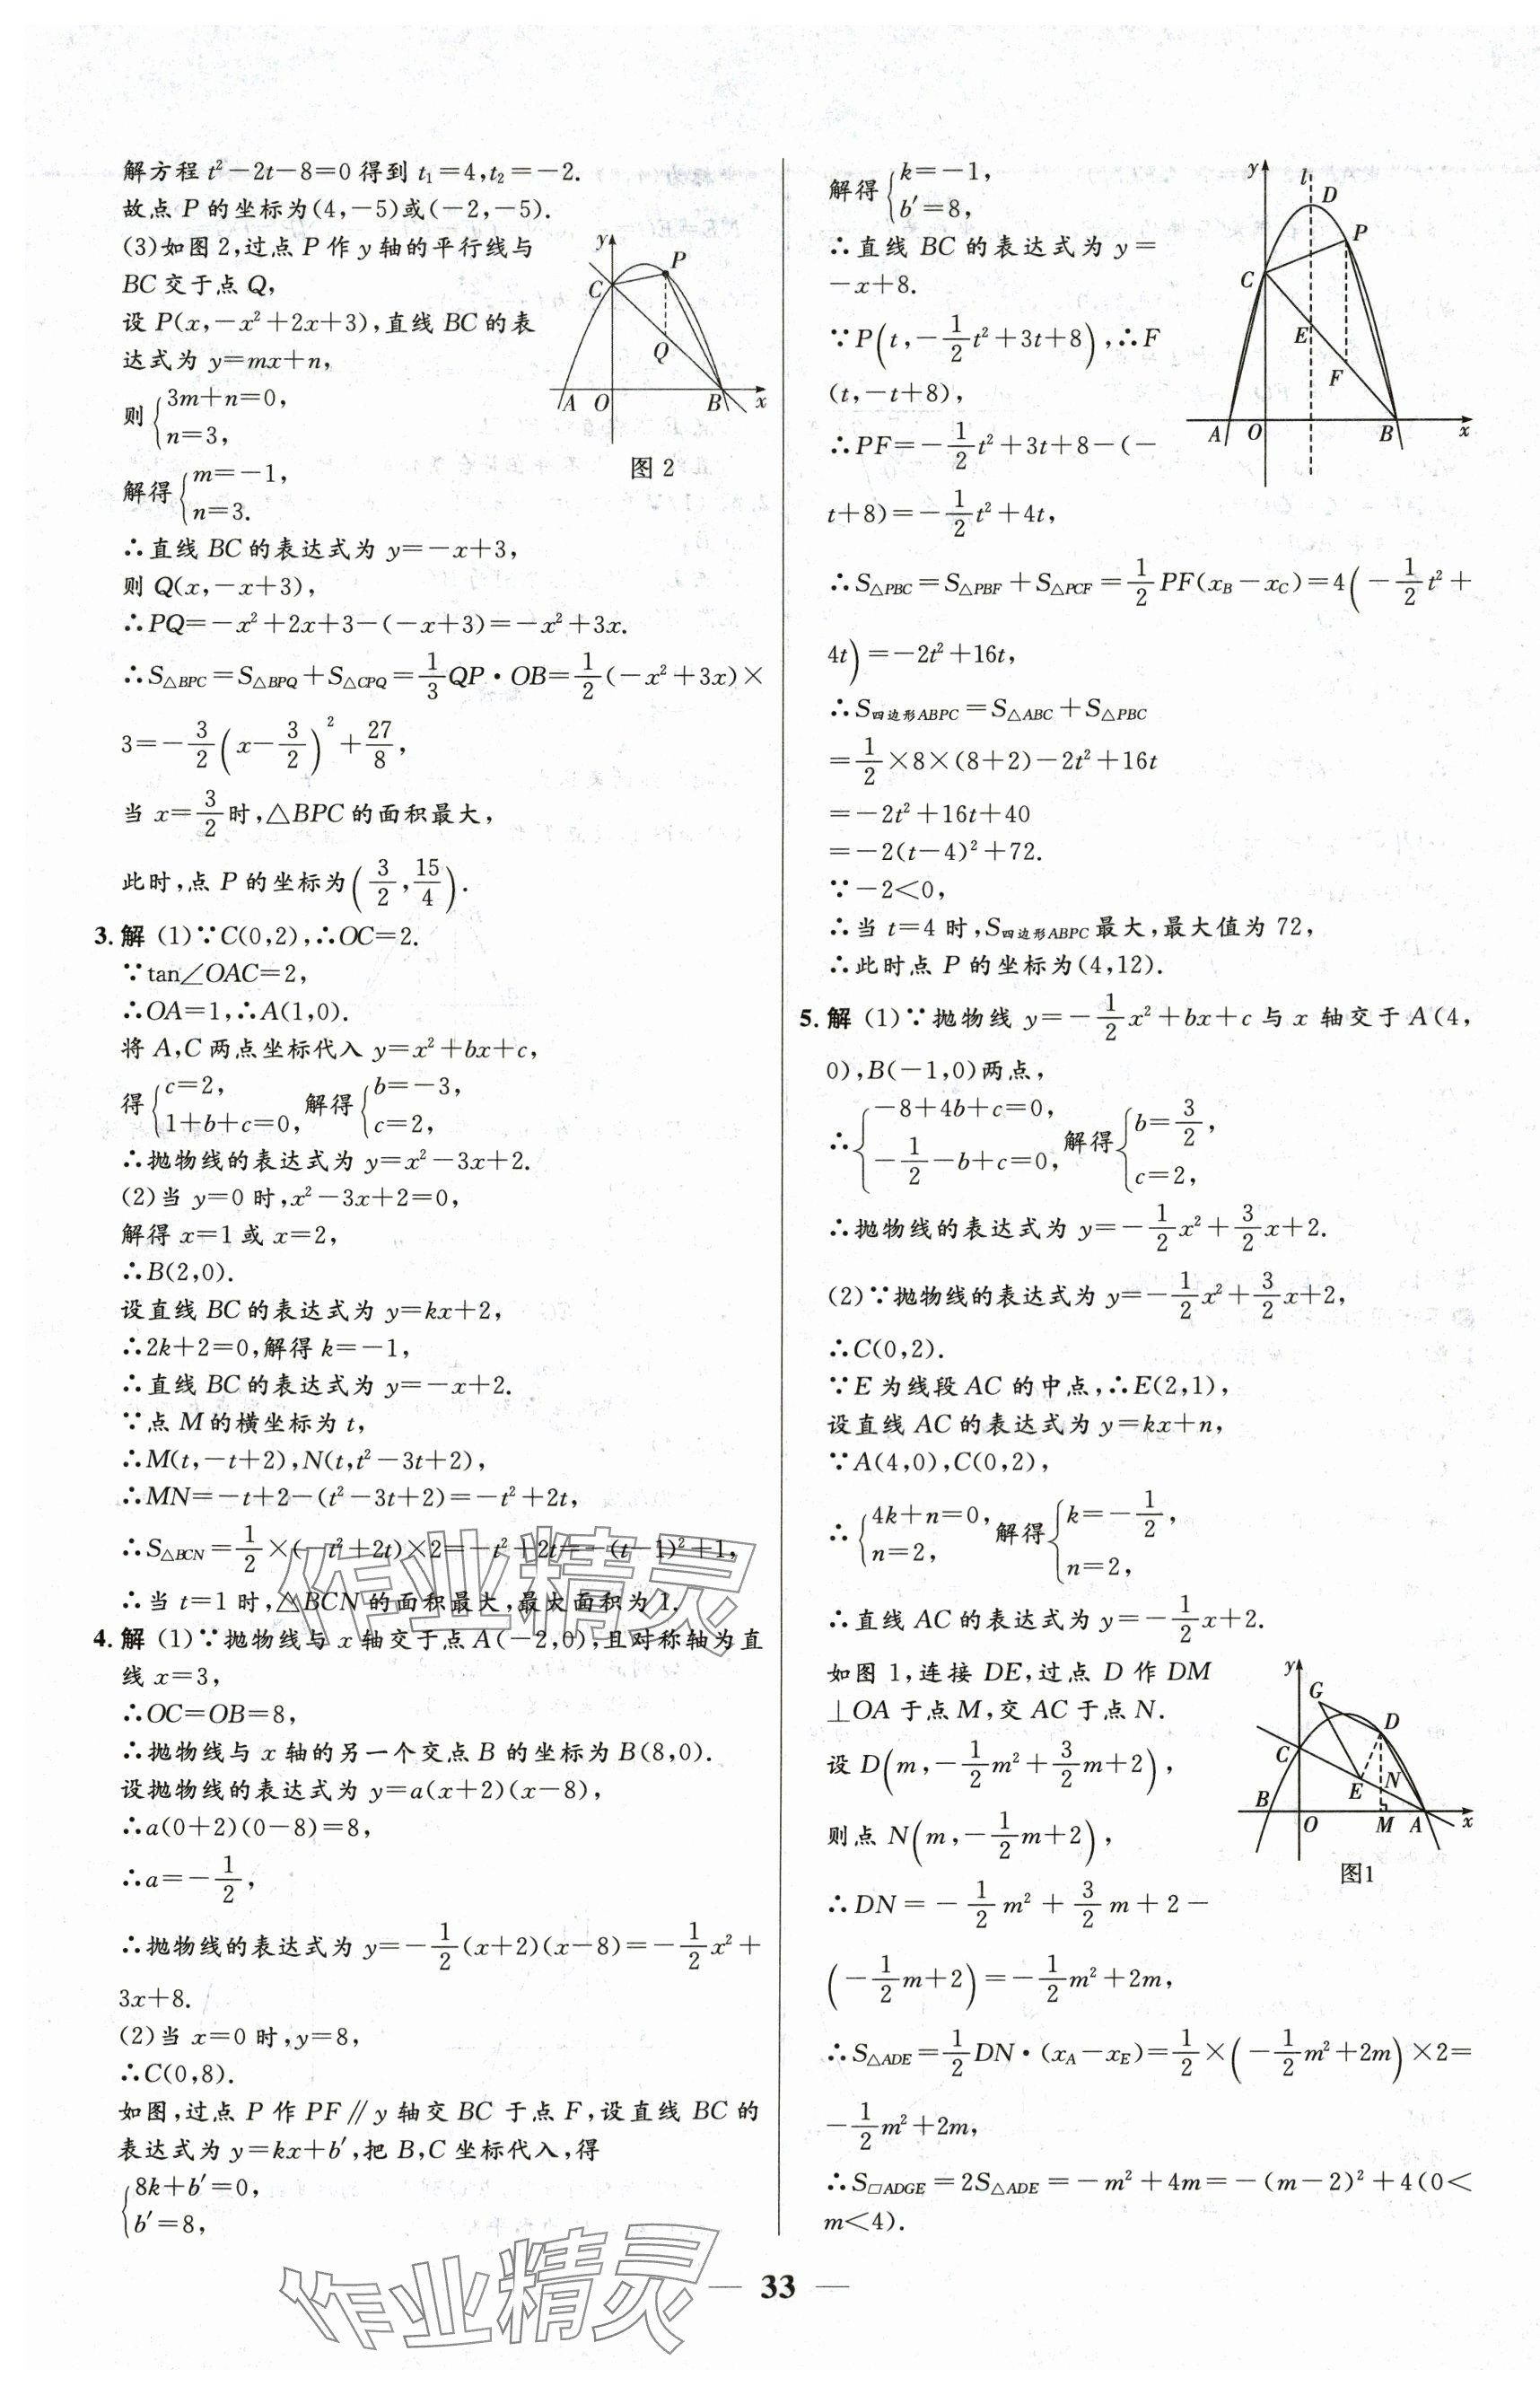 解方程 t²−2t−8=0 得到 t₁=4,t₂=−2.
故点 P 的坐标为(4,−5)或(−2,−5).
(3)如图2,过点 P 作 y 轴的平行线与
BC 交于点 Q,
设 P(x,−x²+2x+3),直线 BC 的表
达式为 y=mx+n,
则{3m+n=0,
n=3,
解得{m=−1,
n=3.
∴直线 BC 的表达式为 y=−x+3,
则 Q(x,−x+3),
∴PQ=−x²+2x+3−(−x+3)=−x²+3x.
∴S△BPC=S△BPQ+S△CPQ=1/3 QP·OB=1/2(−x²+3x)×
3=−3/2(x−3/2)²+27/8,
当 x=3/2时,△BPC 的面积最大,
此时,点 P 的坐标为(3/2,15/4).
y
P
C
Q
A O B x
图 2
3. 解 (1)∵C(0,2),∴OC=2.
∵tan∠OAC=2,
∴OA=1,∴A(1,0).
将 A,C 两点坐标代入 y=x²+bx+c,
得{c=2,
1+b+c=0, 解得{b=−3,
c=2,
∴抛物线的表达式为 y=x²−3x+2.
(2)当 y=0 时,x²−3x+2=0,
解得 x=1 或 x=2,
∴B(2,0).
设直线 BC 的表达式为 y=kx+2,
∴2k+2=0,解得 k=−1,
∴直线 BC 的表达式为 y=−x+2.
∵点 M 的横坐标为 t,
∴M(t,−t+2),N(t,t²−3t+2),
∴MN=−t+2−(t²−3t+2)=−t²+2t,
∴S△BCN=1/2×(−t²+2t)×2=−t²+2t=−(t−1)²+1,
∴当 t=1 时,△BCN 的面积最大,最大面积为 1.
4. 解 (1)∵抛物线与 x 轴交于点 A(−2,0),且对称轴为直
线 x=3,
∴OC=OB=8,
∴抛物线与 x 轴的另一个交点 B 的坐标为 B(8,0).
设抛物线的表达式为 y=a(x+2)(x−8),
∴a(0+2)(0−8)=8,
∴a=−1/2,
∴抛物线的表达式为 y=−1/2(x+2)(x−8)=−1/2x²+
3x+8.
(2)当 x=0 时,y=8,
∴C(0,8).
如图,过点 P 作 PF∥y 轴交 BC 于点 F,设直线 BC 的
表达式为 y=kx+b′,把 B,C 坐标代入,得
{8k+b′=0,
b′=8,
解得{k=−1,
b′=8,
∴直线 BC 的表达式为 y=
−x+8.
∵P(t,−1/2t²+3t+8),∴F
(t,−t+8),
∴PF=−1/2t²+3t+8−(−
t+8)=−1/2t²+4t,
y
l
D
P
C
E
F
A O B x
∴S△PBC=S△PBF+S△PCF=1/2PF(xB−xC)=4(−1/2t²+
4t)=−2t²+16t,
∴S四边形ABPC=S△ABC+S△PBC
=1/2×8×(8+2)−2t²+16t
=−2t²+16t+40
=−2(t−4)²+72.
∵−2<0,
∴当 t=4 时,S四边形ABPC最大,最大值为 72,
∴此时点 P 的坐标为(4,12).
5. 解 (1)∵抛物线 y=−1/2x²+bx+c 与 x 轴交于 A(4,
0),B(−1,0)两点,
∴{−8+4b+c=0,
−1/2−b+c=0, 解得{b=3/2,
c=2,
∴抛物线的表达式为 y=−1/2x²+3/2x+2.
(2)∵抛物线的表达式为 y=−1/2x²+3/2x+2,
∴C(0,2).
∵E 为线段 AC 的中点,∴E(2,1),
设直线 AC 的表达式为 y=kx+n,
∵A(4,0),C(0,2),
∴{4k+n=0,
n=2, 解得{k=−1/2,
n=2,
∴直线 AC 的表达式为 y=−1/2x+2.
如图 1,连接 DE,过点 D 作 DM
⊥OA 于点 M,交 AC 于点 N.
设 D(m,−1/2m²+3/2m+2),
则点 N(m,−1/2m+2),
∴DN=−1/2m²+3/2m+2−
(−1/2m+2)=−1/2m²+2m,
y
G
D
C
E
N
B O M A x
图1
∴S△ADE=1/2DN·(xA−xE)=1/2×(−1/2m²+2m)×2=
−1/2m²+2m,
∴S□ADGE=2S△ADE=−m²+4m=−(m−2)²+4(0<
m<4).
— 33 —
作业精灵
作业精灵